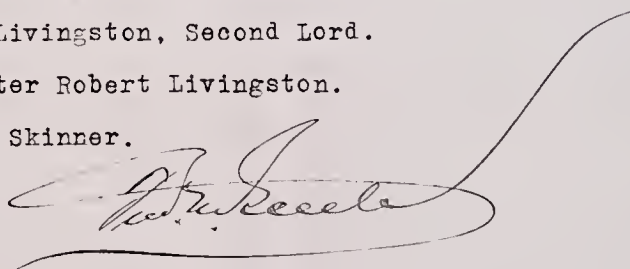 Livingston, Second Lord.
ter Robert Livingston.
Skinner.